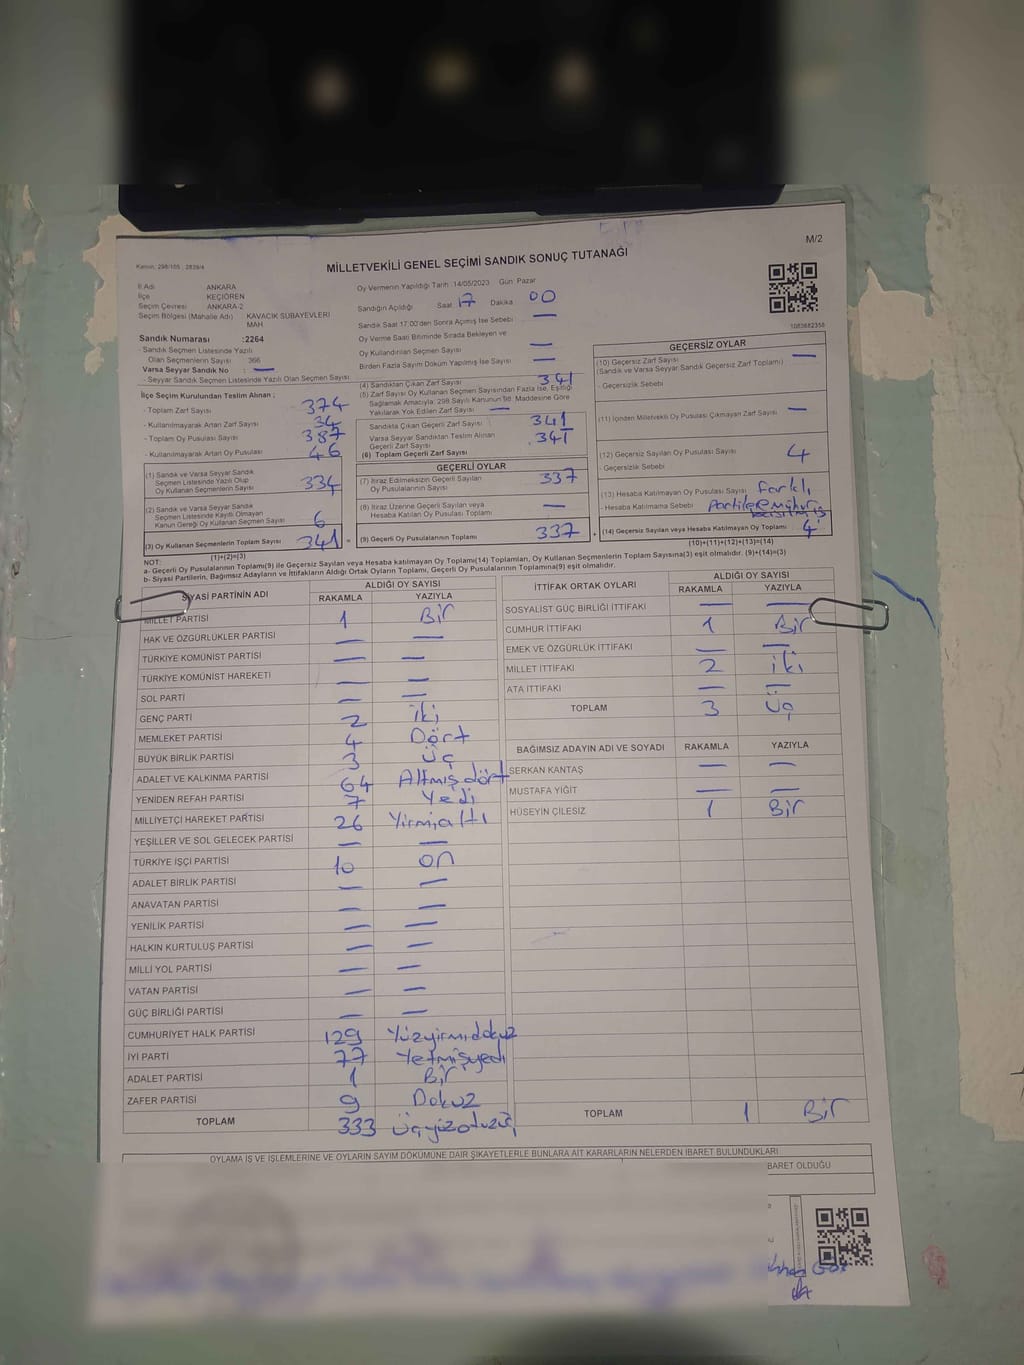 M/2
Kanun: 298/105 ; 2839/4
MİLLETVEKİLİ GENEL SEÇİMİ SANDIK SONUÇ TUTANAĞI
İl Adı ANKARA
İlçe KEÇİÖREN
Seçim Çevresi ANKARA-2
Seçim Bölgesi (Mahalle Adı) KAVACIK SUBAYEVLERİ MAH
Sandık Numarası :2264
- Sandık Seçmen Listesinde Yazılı
Olan Seçmenlerin Sayısı 366
Varsa Seyyar Sandık No : —
- Seyyar Sandık Seçmen Listesinde Yazılı Olan Seçmen Sayısı
Oy Vermenin Yapıldığı Tarih :14/05/2023 Gün: Pazar
Sandığın Açıldığı Saat 17 Dakika : 00
Sandık Saat 17:00'den Sonra Açılmış İse Sebebi : —
Oy Verme Saati Bitiminde Sırada Bekleyen ve
Oy Kullandırılan Seçmen Sayısı —
Birden Fazla Sayım Döküm Yapılmış İse Sayısı —
1083682358
İlçe Seçim Kurulundan Teslim Alınan ;
- Toplam Zarf Sayısı 374
- Kullanılmayarak Artan Zarf Sayısı 34
- Toplam Oy Pusulası Sayısı 387
- Kullanılmayarak Artan Oy Pusulası 46
(1) Sandık ve Varsa Seyyar Sandık
Seçmen Listesinde Yazılı Olup
Oy Kullanan Seçmenlerin Sayısı 334
(2) Sandık ve Varsa Seyyar Sandık
Seçmen Listesinde Kayıtlı Olmayan
Kanun Gereği Oy Kullanan Seçmen Sayısı 6
(3) Oy Kullanan Seçmenlerin Toplam Sayısı 341 =
(1)+(2)=(3)
(4) Sandıktan Çıkan Zarf Sayısı 341
(5) Zarf Sayısı Oy Kullanan Seçmen Sayısından Fazla İse, Eşitliği
Sağlamak Amacıyla; 298 Sayılı Kanunun 98. Maddesine Göre
Yakılarak Yok Edilen Zarf Sayısı —
Sandıkta Çıkan Geçerli Zarf Sayısı 341
Varsa Seyyar Sandıktan Teslim Alınan
Geçerli Zarf Sayısı 341
(6) Toplam Geçerli Zarf Sayısı
GEÇERLİ OYLAR
(7) İtiraz Edilmeksizin Geçerli Sayılan
Oy Pusulalarının Sayısı 337
(8) İtiraz Üzerine Geçerli Sayılan veya
Hesaba Katılan Oy Pusulası Toplamı —
(9) Geçerli Oy Pusulalarının Toplamı 337 +
GEÇERSİZ OYLAR
(10) Geçersiz Zarf Sayısı —
(Sandık ve Varsa Seyyar Sandık Geçersiz Zarf Toplamı)
- Geçersizlik Sebebi
(11) İçinden Milletvekili Oy Pusulası Çıkmayan Zarf Sayısı —
(12) Geçersiz Sayılan Oy Pusulası Sayısı 4
- Geçersizlik Sebebi
(13) Hesaba Katılmayan Oy Pusulası Sayısı Farklı
- Hesaba Katılmama Sebebi
(14) Geçersiz Sayılan veya Hesaba Katılmayan Oy Toplamı 4
(10)+(11)+(12)+(13)=(14)
NOT:
a- Geçerli Oy Pusulalarının Toplamı(9) ile Geçersiz Sayılan veya Hesaba katılmayan Oy Toplamı(14) Toplamları, Oy Kullanan Seçmenlerin Toplam Sayısına(3) eşit olmalıdır. (9)+(14)=(3)
b- Siyasi Partilerin, Bağımsız Adayların ve İttifakların Aldığı Ortak Oyların Toplamı, Geçerli Oy Pusulalarının Toplamına(9) eşit olmalıdır.
SİYASİ PARTİNİN ADI ALDIĞI OY SAYISI
RAKAMLA YAZIYLA
MİLLET PARTİSİ 1 Bir
HAK VE ÖZGÜRLÜKLER PARTİSİ — —
TÜRKİYE KOMÜNİST PARTİSİ — —
TÜRKİYE KOMÜNİST HAREKETİ — —
SOL PARTİ — —
GENÇ PARTİ 2 iki
MEMLEKET PARTİSİ 4 Dört
BÜYÜK BİRLİK PARTİSİ 3 Üç
ADALET VE KALKINMA PARTİSİ 64 Altmışdört
YENİDEN REFAH PARTİSİ 7 Yedi
MİLLİYETÇİ HAREKET PARTİSİ 26 Yirmialtı
YEŞİLLER VE SOL GELECEK PARTİSİ — —
TÜRKİYE İŞÇİ PARTİSİ 10 on
ADALET BİRLİK PARTİSİ — —
ANAVATAN PARTİSİ — —
YENİLİK PARTİSİ — —
HALKIN KURTULUŞ PARTİSİ — —
MİLLİ YOL PARTİSİ — —
VATAN PARTİSİ — —
GÜÇ BİRLİĞİ PARTİSİ — —
CUMHURİYET HALK PARTİSİ 129 Yüzyirmidokuz
İYİ PARTİ 77 Yetmişyedi
ADALET PARTİSİ 1 Bir
ZAFER PARTİSİ 9 Dokuz
TOPLAM 333 Üçyüzotuzüç
İTTİFAK ORTAK OYLARI ALDIĞI OY SAYISI
RAKAMLA YAZIYLA
SOSYALİST GÜÇ BİRLİĞİ İTTİFAKI — —
CUMHUR İTTİFAKI 1 Bir
EMEK VE ÖZGÜRLÜK İTTİFAKI — —
MİLLET İTTİFAKI 2 iki
ATA İTTİFAKI — —
TOPLAM 3 Üç
BAĞIMSIZ ADAYIN ADI VE SOYADI RAKAMLA YAZIYLA
SERKAN KANTAŞ — —
MUSTAFA YİĞİT — —
HÜSEYİN ÇİLESİZ 1 Bir
TOPLAM 1 Bir
OYLAMA İŞ VE İŞLEMLERİNE VE OYLARIN SAYIM DÖKÜMÜNE DAİR ŞİKAYETLERLE BUNLARA AİT KARARLARIN NELERDEN İBARET BULUNDUKLARI
BARET OLDUĞU